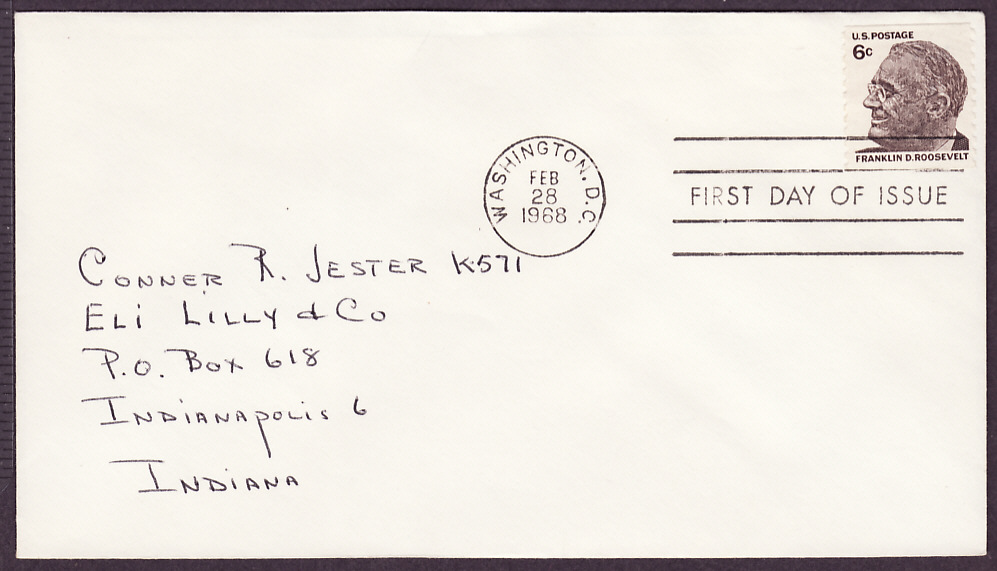 U.S. POSTAGE
6c
FRANKLIN D. ROOSEVELT
WASHINGTON, D.C.
FEB
28
1968
FIRST DAY OF ISSUE
CONNER R. JESTER K-571
ELI LILLY & CO
P.O. BOX 618
INDIANAPOLIS 6
INDIANA